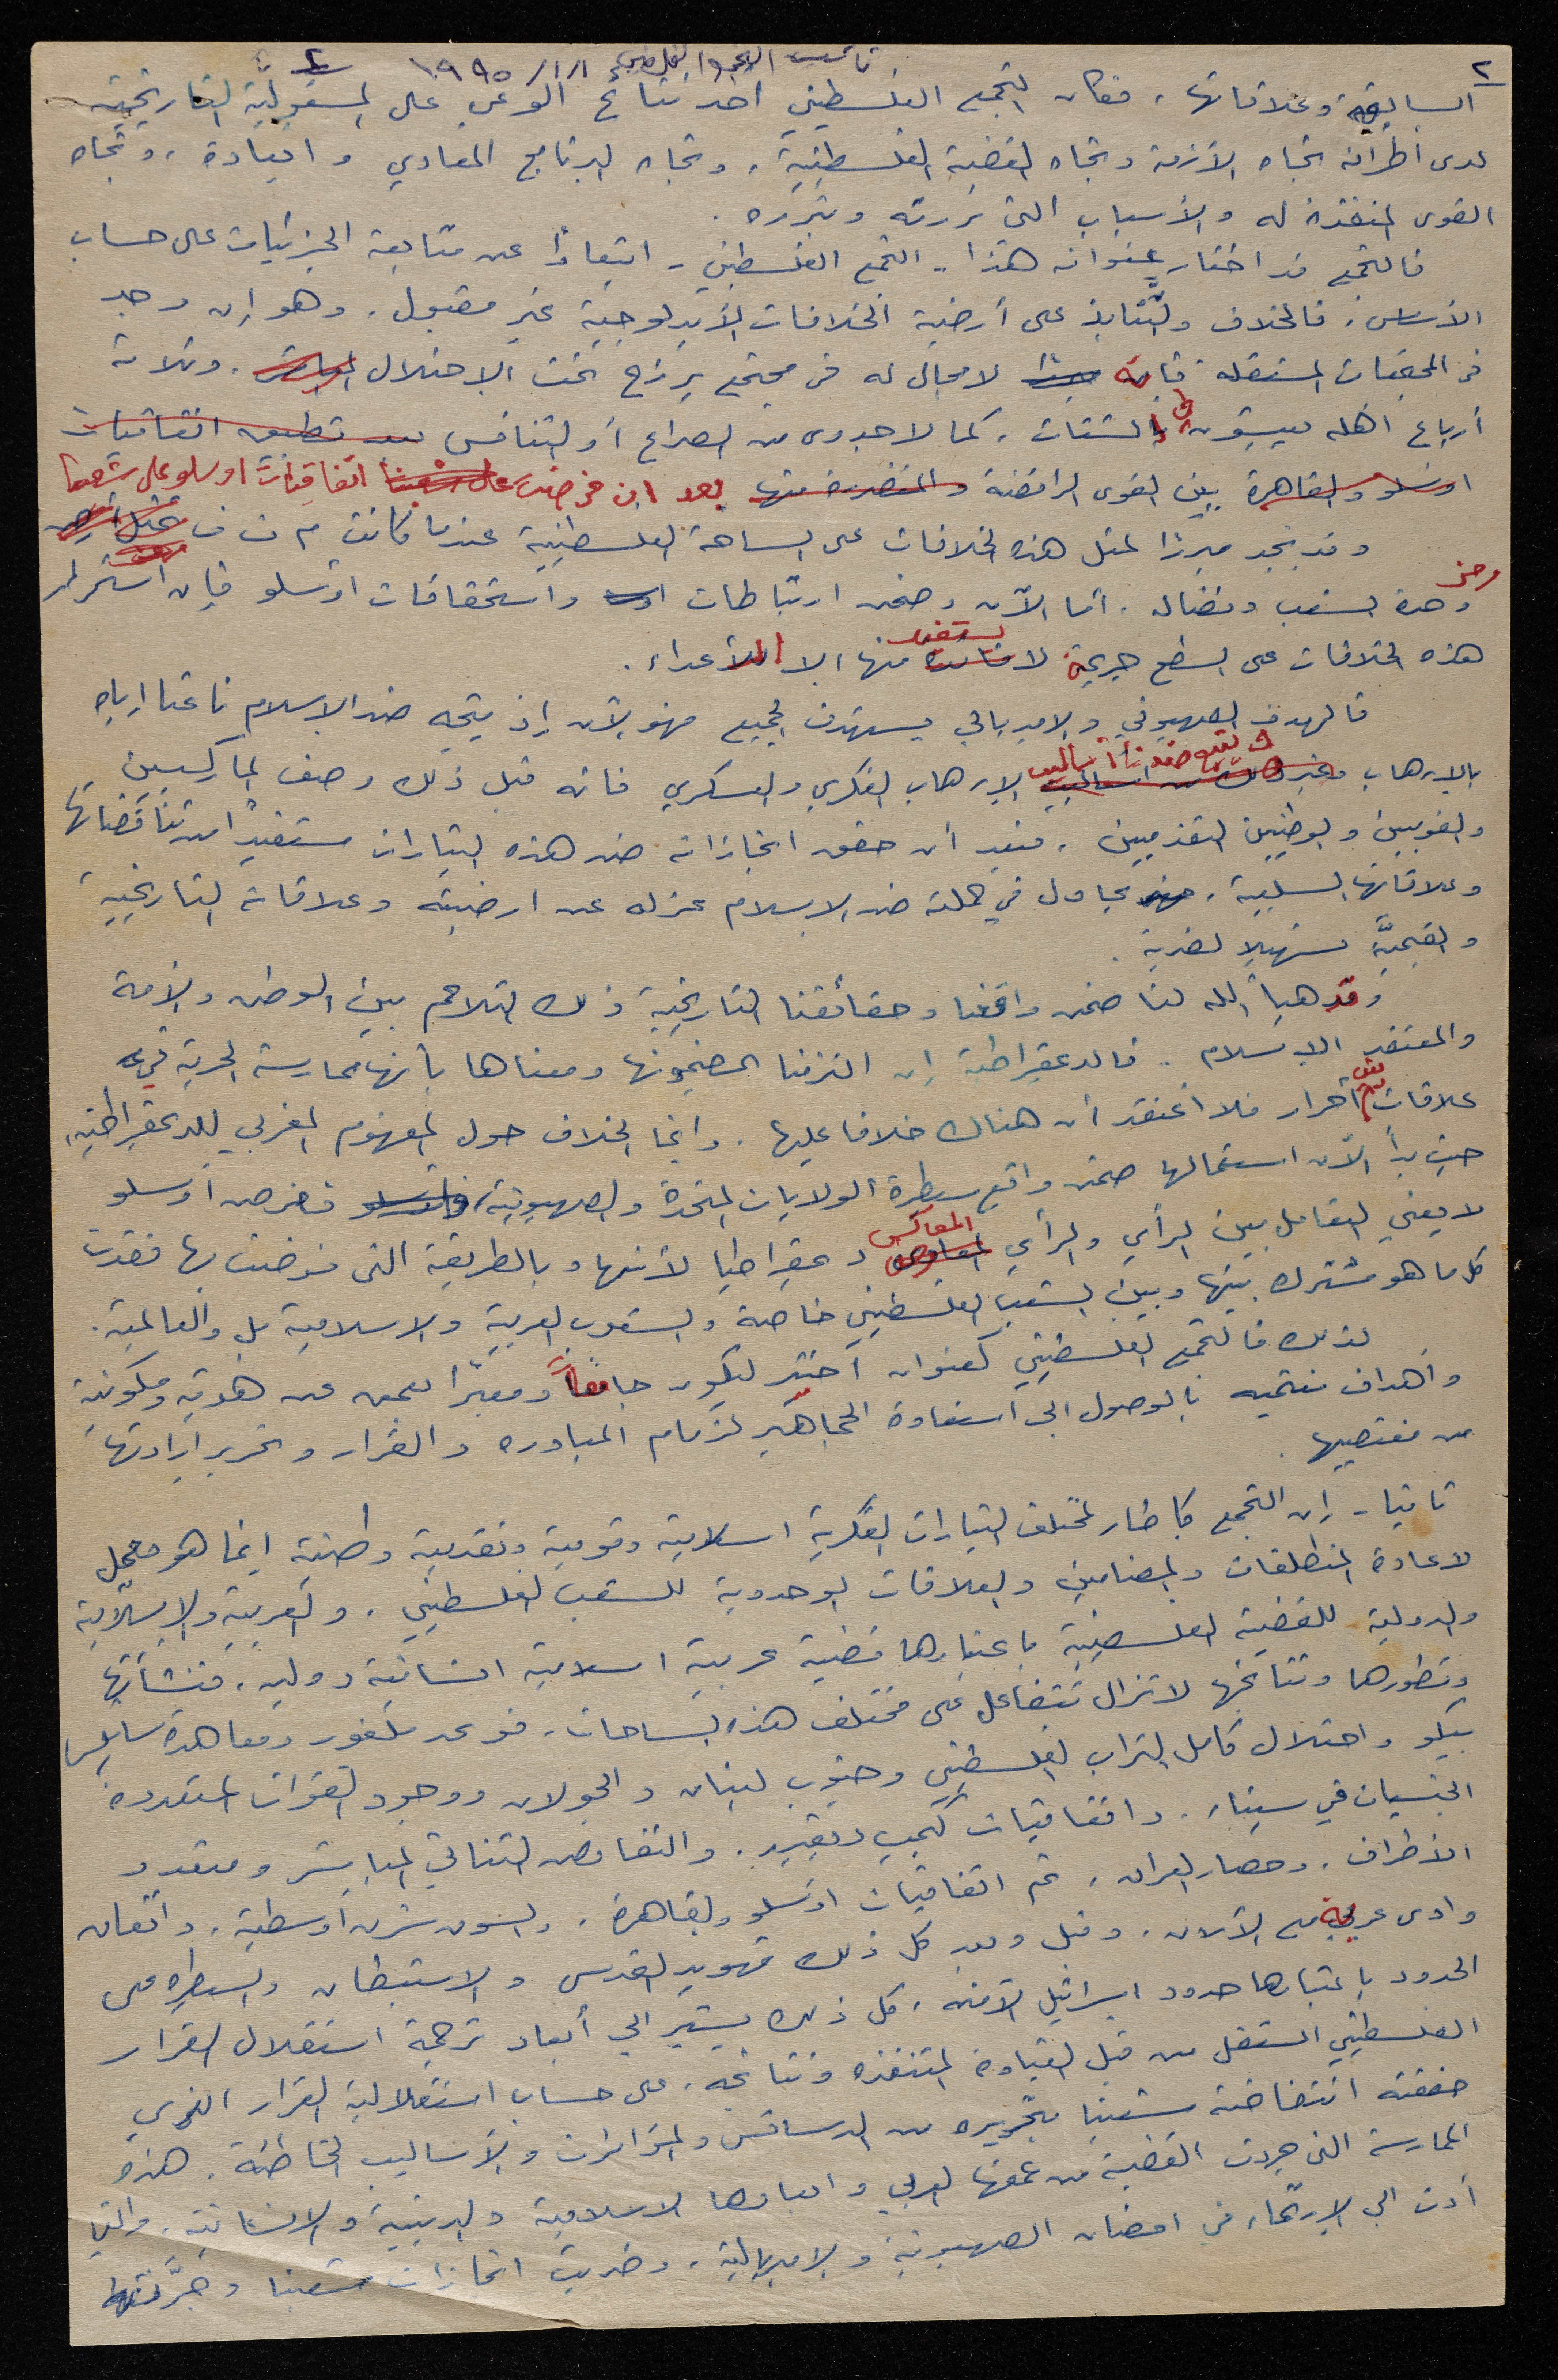 ٢
تأسيس التجمع الفلسطيني ١/١/١٩٩٥ ٢
السابقة وعلاقاتها، فكان التجمع الفلسطيني أحد نتائج الوعي على المسؤولية التاريخية
لدى أطرافه تجاه الأزمة وتجاه القضية الفلسطينية، وتجاه البرنامج المعادي وابعاده، وتجاه
القوى المنفذة له والأسباب التي بررته وتبرره.
فالتجمع قد اختار عنوانه هذا - التجمع الفلسطيني - ابتعاداً عن متابعة الجزئيات على حساب
الأساس، فالخلاف والتنابذ على أرضية الخلافات الأيديولوجية غير مقبول. وهو إن وجد
في المجتمعات المستقلة فانه لا مجال له في مجتمع يرزح تحت الاحتلال. وثلاثة
أرباع أهله يعيشون في الشتات، كما لا جدوى من الصراع أو التنافس بعد تطبيق اتفاقيات
اوسلو والقاهرة بين القوى الرافضة والمتضررة منها بعد ان فرضت على شعبنا اتفاقيات اوسلو على شعبنا
وقد نجد مبررا لمثل هذه الخلافات على الساحة الفلسطينية عندما كانت م ت ف تمثل أرضية
وحدة الشعب ونضاله. أما الآن وضمن ارتباطات واستحقاقات اوسلو فإن استمرار
هذه الخلافات على السطح جريمة لا يستفيد منها الا الأعداء.
فالهدف الصهيوني والامبريالي يستهدف الجميع فهو الآن إذ يتجه ضد الاسلام ناعتا إياه
بالارهاب الإرهاب الفكري والعسكري فانه قبل ذلك وصف الماركسيين
والقوميين والوطنيين التقدميين، فبعد أن حقق انجازاته ضد هذه التيارات مستفيداً من تناقضاتها
وعلاقاتها السلبية، فهو يحاول في حملته ضد الاسلام عزله عن ارضيته وعلاقاته التاريخية
والقيميّة تسهيلا لضربه.
وقد هيأ الله لنا ضمن واقعنا وحقائقنا التاريخية ذلك التلاحم بين الوطن والأمة
والمعتقد الاسلام. فالديمقراطية إن التزمنا بمضمونها ومعناها بأنها ممارسة الحرية في
علاقات بين أحرار فلا أعتقد أن هناك خلافا عليها. وانما الخلاف حول المفهوم الغربي للديمقراطية،
حيث بدأ الآن استعمالها ضمن واقع سيطرة الولايات المتحدة والصهيونية، ففرض أوسلو
لا يعني التعامل بين الرأي والرأي المعاكس ديمقراطيا لأنها وبالطريقة التي فرضت بها فقدت
كل ما هو مشترك بينها وبين الشعب الفلسطيني خاصة والشعوب العربية والاسلامية بل والعالمية.
لذلك فالتجمع الفلسطيني كعنوان اختير ليكون جامعاً ومعبراً بعمق عن هوية ومكونية
وأهداف منتميه بالوصول الى استعادة الجماهير لزمام المبادرة والقرار وتحرير ارادتها
من مغتصبيها.
ثانيا - إن التجمع كإطار لمختلف التيارات الفكرية اسلامية وقومية وتقدمية وطنية إنما هو مجمل
لاعادة المنطلقات والمضامين والعلاقات الوحدوية للشعب الفلسطيني، والعربية والإسلامية
والدولية للقضية الفلسطينية باعتبارها قضية عربية اسلامية انسانية دولية، فنشأتها
وتطورها ونتائجها لا تزال تتفاعل على مختلف هذه الساحات، فوعد بلفور ومعاهدة سايكس
بيكو واحتلال كامل التراب الفلسطيني وجنوب لبنان والجولان ووجود القوات المتعددة
الجنسيات في سيناء، واتفاقيات كمب ديفيد، والتفاوض الثنائي المباشر ومتعدد
الأطراف، وحصار العراق، ثم اتفاقيات اوسلو والقاهرة، والسوق شرق أوسطية، واتفاق
وادي عربة مع الأردن، وقبل وبعد كل ذلك تهويد القدس والاستيطان والسيطرة على
الحدود باعتبارها حدود اسرائيل الآمنة، كل ذلك يشير الى أبعاد ترجمة استقلال القرار
الفلسطيني المستقل من قبل القيادة المتنفذة ونتائجه، على حساب استقلالية القرار الذي
حققته انتفاضة شعبنا بتحريره من الدسائس والمؤامرات والأساليب الخاطئة. هذه
الممارسة التي جردت القضية من عمقها العربي وابعادها الاسلامية والدينية والانسانية، والتي
أدت الى الارتماء في احضان الصهيونية والامبريالية، وضربت انجازات شعبنا وجزّئتها